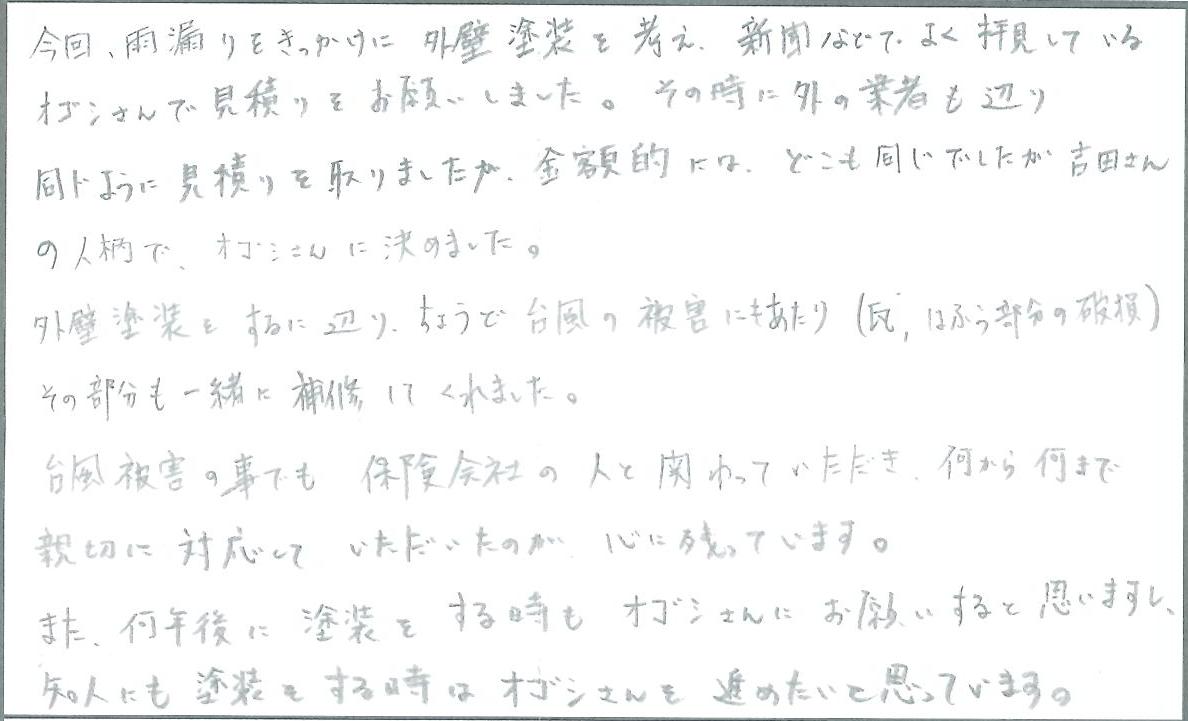 今回、雨漏りをきっかけに 外壁塗装を考え、新聞などで、よく拝見している
オゴシさんで見積りをお願いしました。その時に外の業者も辺り
同じように見積りを取りましたが、金額的には、どこも同じでしたが吉田さん
の人柄で、オゴシさんに決めました。
外壁塗装をするに辺り、ちょうど台風の被害にもあたり(瓦, はふう部分の破損)
その部分も一緒に補修してくれました。
台風被害の事でも 保険会社の人と関わっていただき、何から何まで
親切に対応して いただいたのが 心に残っています。
また、何年後に塗装をする時も オゴシさんに お願いすると思いますし、
知人にも塗装をする時は オゴシさんを進めたいと思っています。